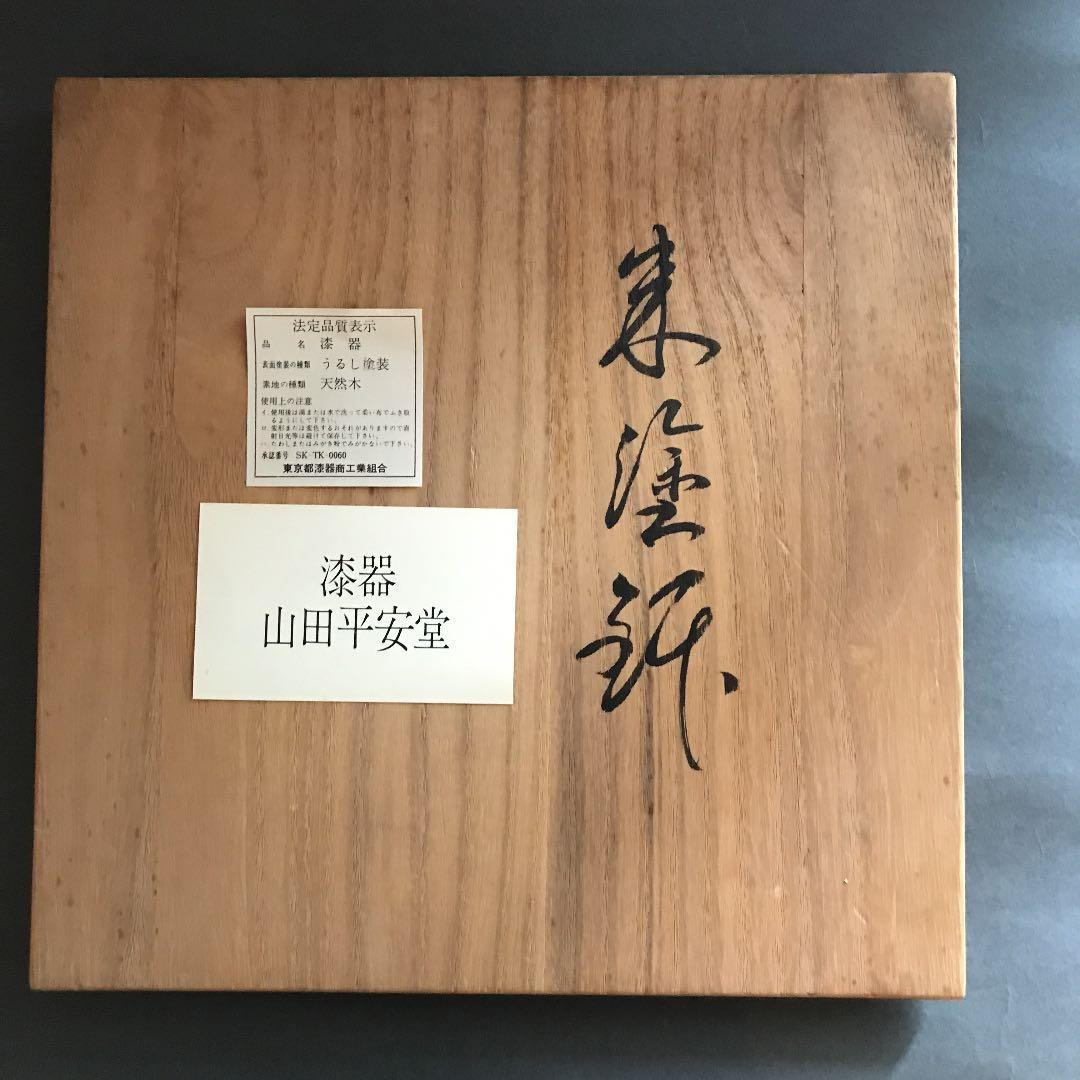 朱塗鉢
法定品質表示
品名 漆器
表面塗装の種類 うるし塗装
素地の種類 天然木
使用上の注意
イ.使用後は湯または水で洗って柔い布でふき取
るようにして下さい。
ロ.変形または変色するおそれがありますので直
射日光等は避けて保存して下さい。
ハ.たわしまたはみがき粉でみがかないで下さい。
承認番号 SK-TK-0060
東京都漆器商工業組合
漆器
山田平安堂